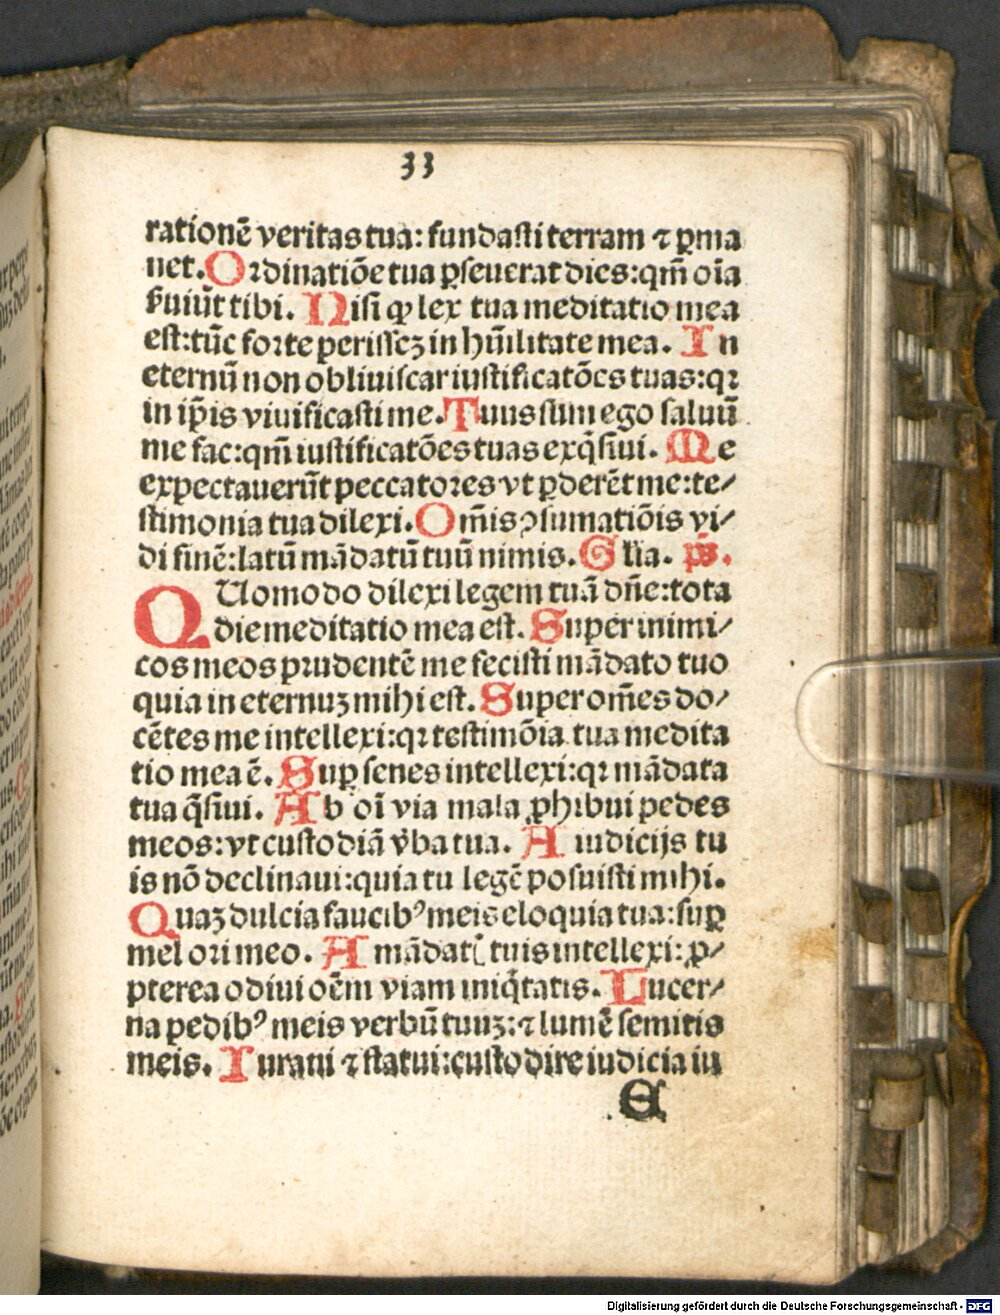 33
rationē veritas tua: fundasti terram ⁊ ꝑma
net. Ordinatiōe tua ꝑseuerat dies: qm̄ oīa
ẜuiūt tibi. Nisi ꝙ lex tua meditatio mea
est: tūc forte perisseꝫ in hūilitate mea. In
eternū non obliuiscar iustificatōes tuas: qꝛ
in ip̄is viuificasti me. Tuus sum ego saluū
me fac: qm̄ iustificatōes tuas exq̄siui. Me
expectauerūt peccatores vt ꝑderēt me: te/
stimonia tua dilexi. Om̄is ꝯsumatiōis vi/
di finē: latū mādatū tuū nimis. Glīa. ps̄.
QUomodo dilexi legem tuā dn̄e: tota
die meditatio mea est. Super inimi/
cos meos prudentē me fecisti mādato tuo
quia in eternuꝫ mihi est. Super om̄es do/
cētes me intellexi: qꝛ testimōia tua medita
tio mea ē. Suꝑ senes intellexi: qꝛ mādata
tua q̄siui. Ab oī via mala ꝓhibui pedes
meos: vt custodiā v̄ba tua. A iudicijs tu
is nō declinaui: quia tu legē posuisti mihi.
Quaꝫ dulcia faucibꝰ meis eloquia tua: suꝑ
mel ori meo. A mādatꝭ tuis intellexi: ꝓ/
pterea odiui oēm viam iniq̄tatis. Lucer/
na pedibꝰ meis verbū tuuꝫ: ⁊ lumē semitis
meis. Iuraui ⁊ statui: custodire iudicia iu
E
Digitalisierung gefördert durch die Deutsche Forschungsgemeinschaft - DFG